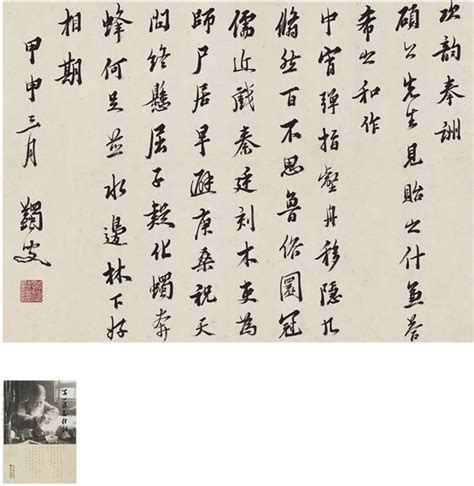 次韵奉詶
碩公先生見貽之什兼答
希之和作
中宵彈指壑舟移隱几
翛然百不思魯俗圜冠
儒近戲秦廷刻木吏為
師尸居早避庚桑祝天
問終懸屈子疑化蠋奔
蜂何足並水邊林下好
相期
甲申三月 蠲叟